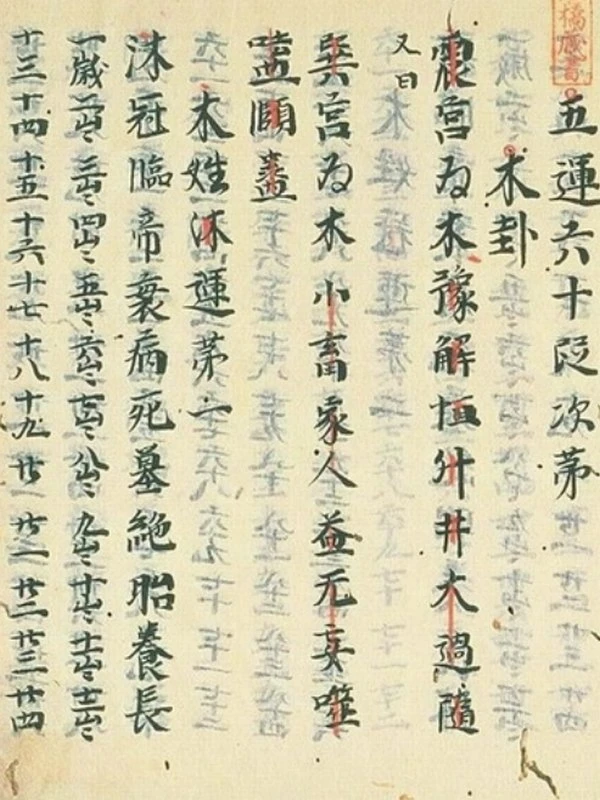 橋蔵書
五運六十段次第
木卦
震宮為木豫解恒升井大過隨
又曰
巽宮為木小畜家人益无妄噬
嗑頤蠱
木姓沐運第一
沐冠臨帝衰病死墓絶胎養長
一歳二歳三歳四歳五歳六歳七歳八歳九歳十歳十一歳十二歳
十三十四十五十六十七十八十九廿廿一廿二廿三廿四